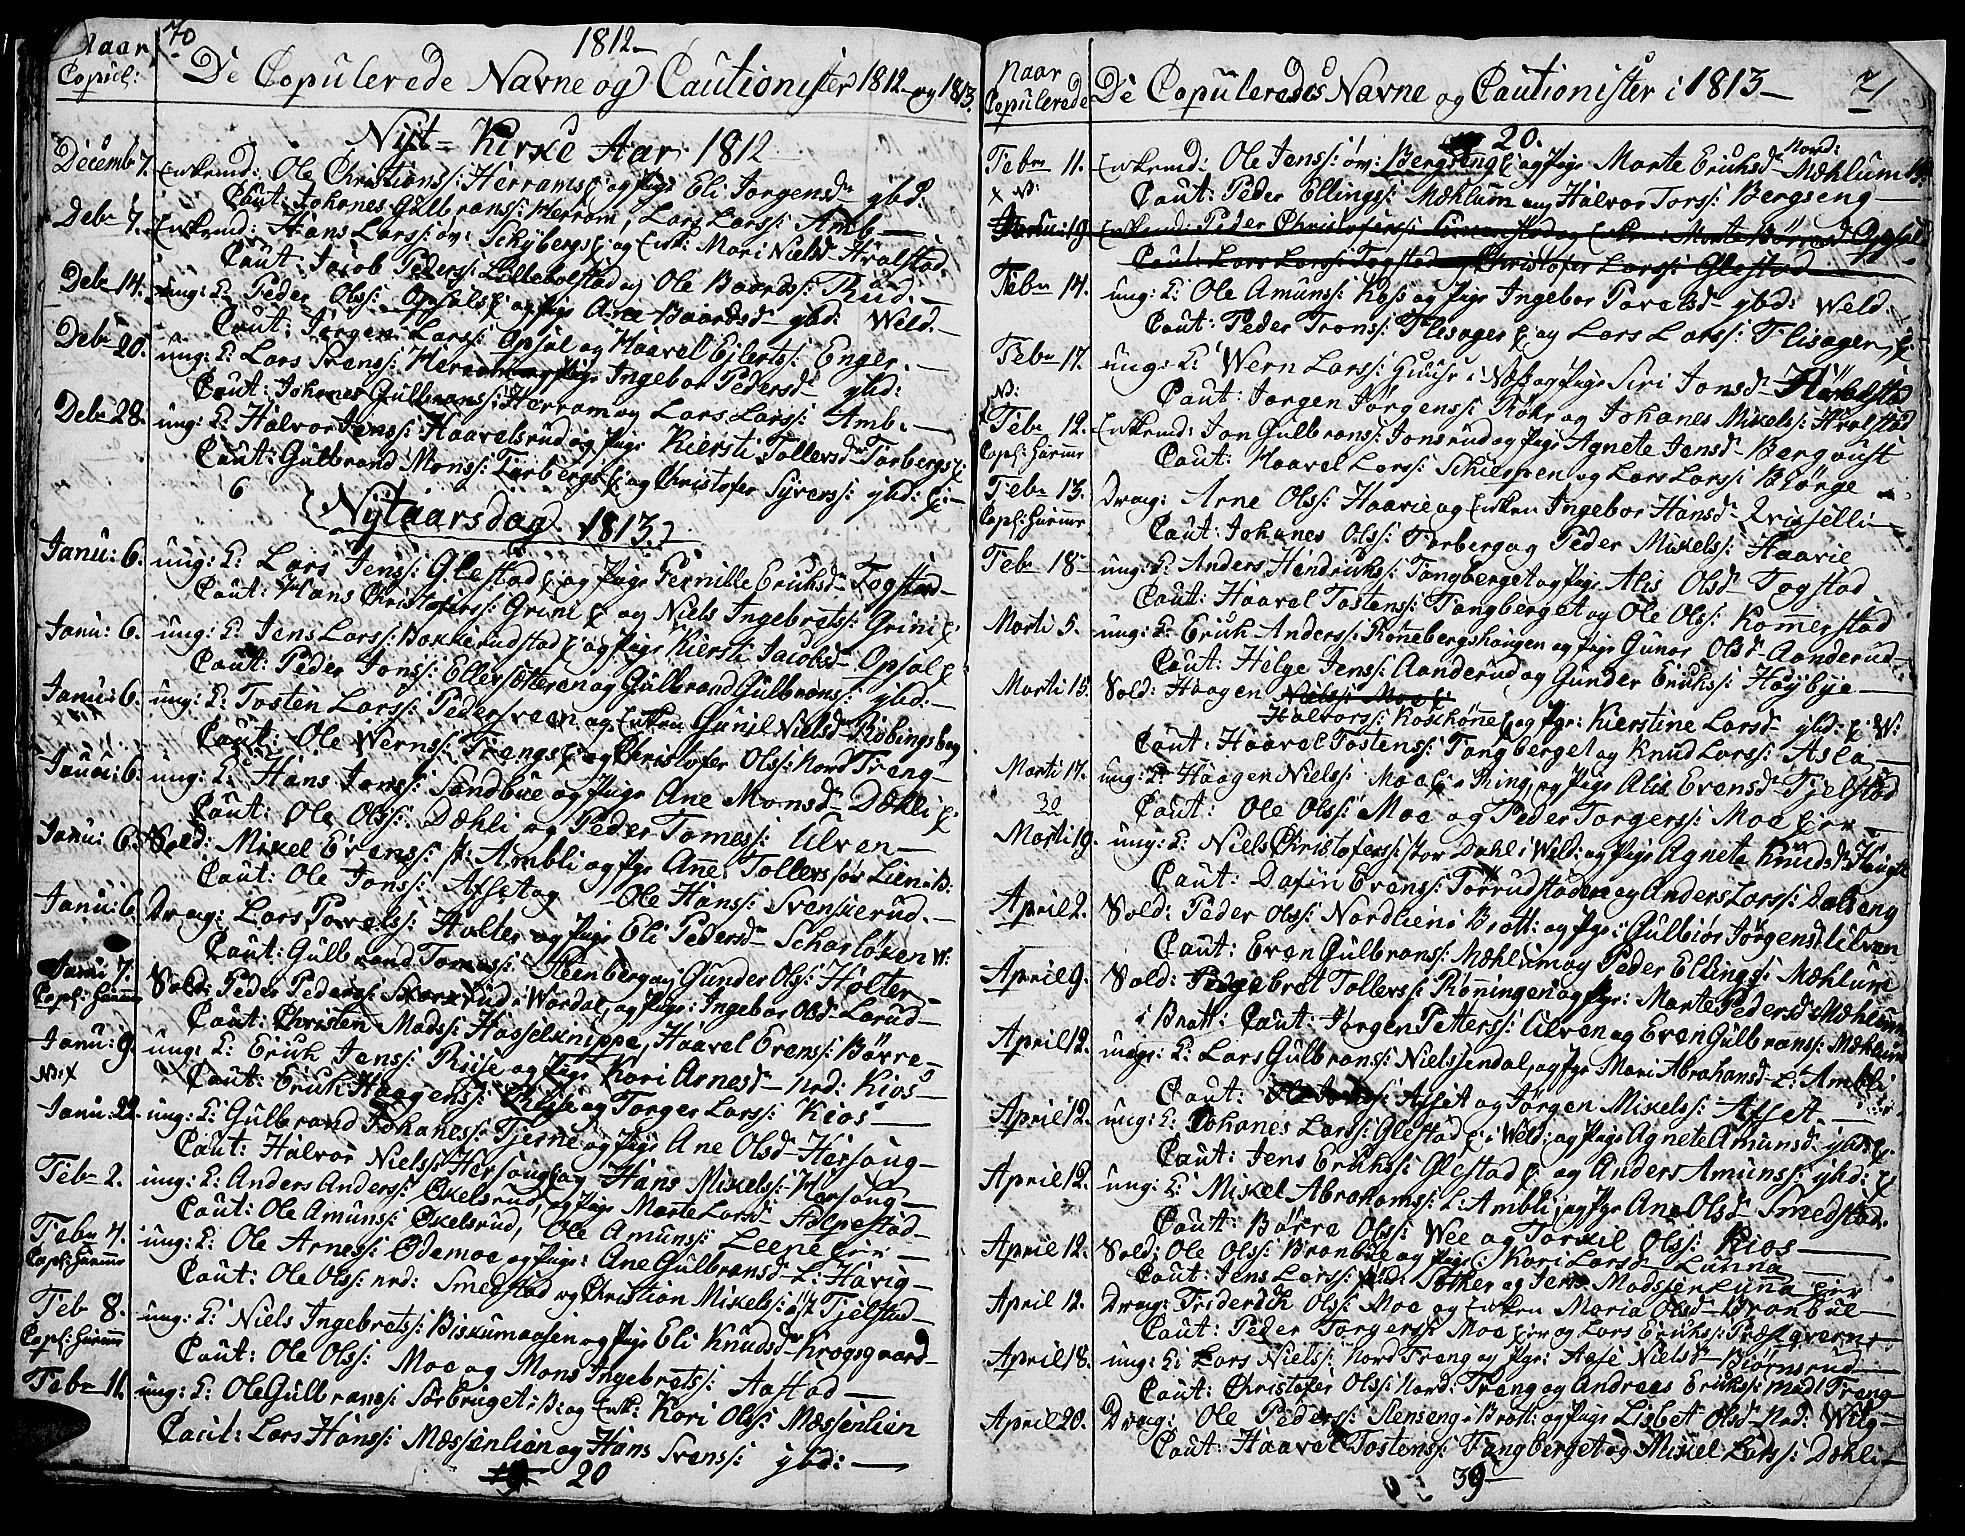 Naar
Copul:
70
1812
De Copulerede Navne og Cautionister 1812 og 1813.
Nyt-Kirke Aar 1812
Decembr 7. Enkemd: Ole Christians: Herrams E: og Pige Eli Jørgensd ybd:
Caut: Johanes Gulbrans: Herram, Lars Lars: Amb
Debr 7. Enkemd: Hans Lars: øv: Schybergs E: og Enk: Mari Nielsd Hvalstad.
Caut: Jacob Peders: Lillebolstad og Ole Baards: Rud.
Debr 14. ung: K: Peder Ols: Opsals E: og Pige Ane Baardsd ybd: Weld.
Caut: Jørgen Lars: Opsal og Haavel Eilerts: Enger.
Debr 20. ung: K: Lars Svens: Herram og Pige Ingebor Pedersd ybd:
Caut: Johanes Gulbrans: Herram og Lars Lars: Amb.
Debr 28. ung: K: Halvor Jens: Haavelsrud og Pige Kiersti Tollersd Torbergs E:
Caut: Gulbrand Mons: Torbergs E: og Christofer Syvers: ybd: E:
6
Nytaarsdag 1813.
Janu: 6. ung: K: Lars Jens: Glestad E: og Pige Pernille Eriksd Togstad
Caut: Hans Christofers: Grini E: og Niels Ingebrets: Grini E:
Janu: 6. ung: K: Jens Lars: Bakkerudstad E: og Pige Kiersti Jacobsd Opsal E:
Caut: Peder Jons: Ellefsætteren og Gulbrand Gulbrans: ybd:
Janu: 6. ung: K: Tosten Lars: Pedersveen og Enken Gunil Nielsd Robingsbag
Caut: Ole Werns: Trengs E: og Christofer Ols: Nord Treng
Janu: 6. ung: K: Hans Jons: Sandbue og Pige Ane Monsd Dæhli E:
Caut: Ole Ols: Dæhli og Peder Tomes: Ulven
Janu: 6. Sold: Mikel Evens: st: Ambli og Pige Anne Tollers Lien B:
Caut: Ole Jons: Afset og Ole Hans: Svenkerud.
Janu: 6. Drag: Lars Povels: Holter og Pige Eli Pedersd Scharløken W:
Caut: Gulbrand Tomes: Steenberg og Gunder Ols: Holter
Janu: 7. Sold: Peder Peders: Skarkrud i Wardal, og Pige: Ingebor Olsd Lørud
Capl: Hamme
Caut: Christen Mads: Hasselknippe, Haavel Evens: Børre
Janu: 9. ung: K: Erich Jens: Riise og Pige Kari Arnesd nrd: Kios
N: X
Caut: Erich Haagens: Riise og Torger Lars: Kios
Janu: 22. ung: K: Gulbrand Johanes: Tjerne og Pige Ane Olsd Horsoug
Caut: Halvor Niels: Horsoug og Hans Mikels: Horsoug
Febr 2. ung: K: Anders Anders: Økelsrud, og Pige Marte Larsd Halpestad
Caut: Ole Amuns: Økelsrud, Ole Amuns: Leene E:
Febr 4. ung: K: Ole Arnes: Ødemoe og Pige: Ane Gulbransd L: Harig
Capl: Hamme
Caut: Ole Ols: nrd: Smedstad og Christian Mikels: øst Tjelstad
Feb 8. ung: K: Niels Ingebrets: Biskumaasen og Pige Eli Knudsd Krogsgaard
Capl: Hamme
Caut: Ole Ols: Moe og Mons Ingebrets: Aastad
Febr 11. ung: K: Ole Gulbrans: Sørbruget i B: og Enk: Kari Olsd Mæssenlien
Caut: Lars Hans: Mæssenlien og Hans Svens: ybd:
20
Naar
Copulerede
De Copuleredes Navne og Cautionister i 1813
71
20.
Febr 11. Enkemd: Ole Jens: øv: Bergseng E: og Pige Marte Eriksd Nord: Mæhlum
X N:
Caut: Peder Ellings: Mæhlum og Halvor Tors: Bergseng
Janu: 19. Enkemd: Peder Christofers: og Enken Marte
Caut: Lars Lars: Togstad Christofer Lars: Glestad
Febr 14. ung: K: Ole Amuns: Kos og Pige Ingebor Povelsd ybd: Weld:
Caut: Peder Trons: Flisager E: og Lars Lars: Flisager, E:
Febr 17. ung: K: Wern Lars: Huuse i Næs og Pige Siri Jonsd Hvalstad
N:
Caut: Jørgen Jørgens: Røhr og Johanes Mikels: Hvalstad
Febr 12. Enkemd: Jon Gulbrans: Jonsrud og Pige Agnete Jensd Bergqust
Capl: Hamme
Caut: Haavel Lars: Schieppen og Lars Lars: Biørge
Febr 13. Drag: Arne Ols: Haarie og Enken Ingebor Hansd Qvisselli
Capl: Hamme
Caut: Johanes Ols: Torberg og Peder Mikels: Haarie
Febr 18 ung: K: Anders Hendriks: Tangberget og Pige Alis Olsd Togstad
Caut: Haavel Tostens: Tangberget og Ole Ols: Komerstad
Marti 5. ung: K: Erich Anders: Rønebergshaugen og Pige Gunor Olsd Aanderud
Caut: Helge Jens: Aanderud og Gunder Eriks: Høybye
Marti 15. Sold: Haagen Niels: Moe E:
Halvors: Koschønne E: og Pge: Kierstine Larsd ybd: E: W:
Caut: Haavel Tostens: Tangberget og Knud Lars: Asla
Marti 17. ung: K: Haagen Niels: Moe E: i Ring, og Pige Alis Evensd Tjelstad
32
Caut: Ole Ols: Moe og Peder Torgers: Moe E:
Marti 19. ung: K: Niels Christofers: stor Dahl i Weld: og Pige Agnete Knudsd Haugli
Caut: Dafin Evens: Torrudstaden og Anders Lars: Dalseng
April 2. Sold: Peder Ols: Nordlien i Brott: og Pige: Gulbiør Jørgensd Ulven
Caut: Even Gulbrans: Mæhlum og Peder Ellings: Mæhlum
April 9. Sold: Ingebret Tollers: Rønningen og Pge: Marte Pedersd Mæhlum
i Brott: Caut: Jørgen Petters: Ulven og Even Gulbrans: Mæhlum
April 12. ung: K: Lars Gulbrans: Nielssendal, og Pge Mari Abrahamsd L: Ambli
Caut: Ole Afset og Jørgen Mikels: Afset.
April 12. ung: K: Johanes Lars: Glestad E: i Weld: og Pige Agnete Amunsd ybd: E:
Caut: Jens Eriks: Glestad E: og Anders Amuns: ybd: E:
April 12. ung: K: Mikel Abrahams: L: Ambli, og Pge Ane Olsd Smedstad.
Caut: Børre Ols: Wee og Torkil Ols: Kios
April 12. Sold: Ole Ols: Branbue og Pige: Kari Larsd Lunna
Caut: Jens Lars: Løther og Jens Madssen Lunna E:
April 12. Drag: Friderich Ols: Moe og Enken Maria Olsd Branbue
Caut: Peder Torgers: Moe E: og Lars Eriks: Prestqvern
April 18. ung: K: Lars Niels: Nord Treng og Pge: Aase Nielsd Biørnsrud
Caut: Christofer Ols: Nord: Treng og Andreas Eriks: medl Treng
April 20. Drag: Ole Peders: Stenseng i Brott: og Pige Lisbet Olsd Ned: Wilg
Caut: Haavel Tostens: Tangberget og Mikel Lars: Dæhli
39